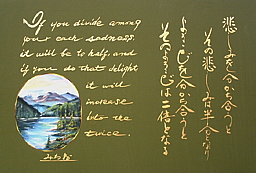 If you divide among
your each sadness,
it will be to half, and
if you do that delight
it will
increase
into the
twice.
悲しみを分かち合うと
その悲しみは半分になり
よろこびを分かち合うと
そのよろこびは二倍となる